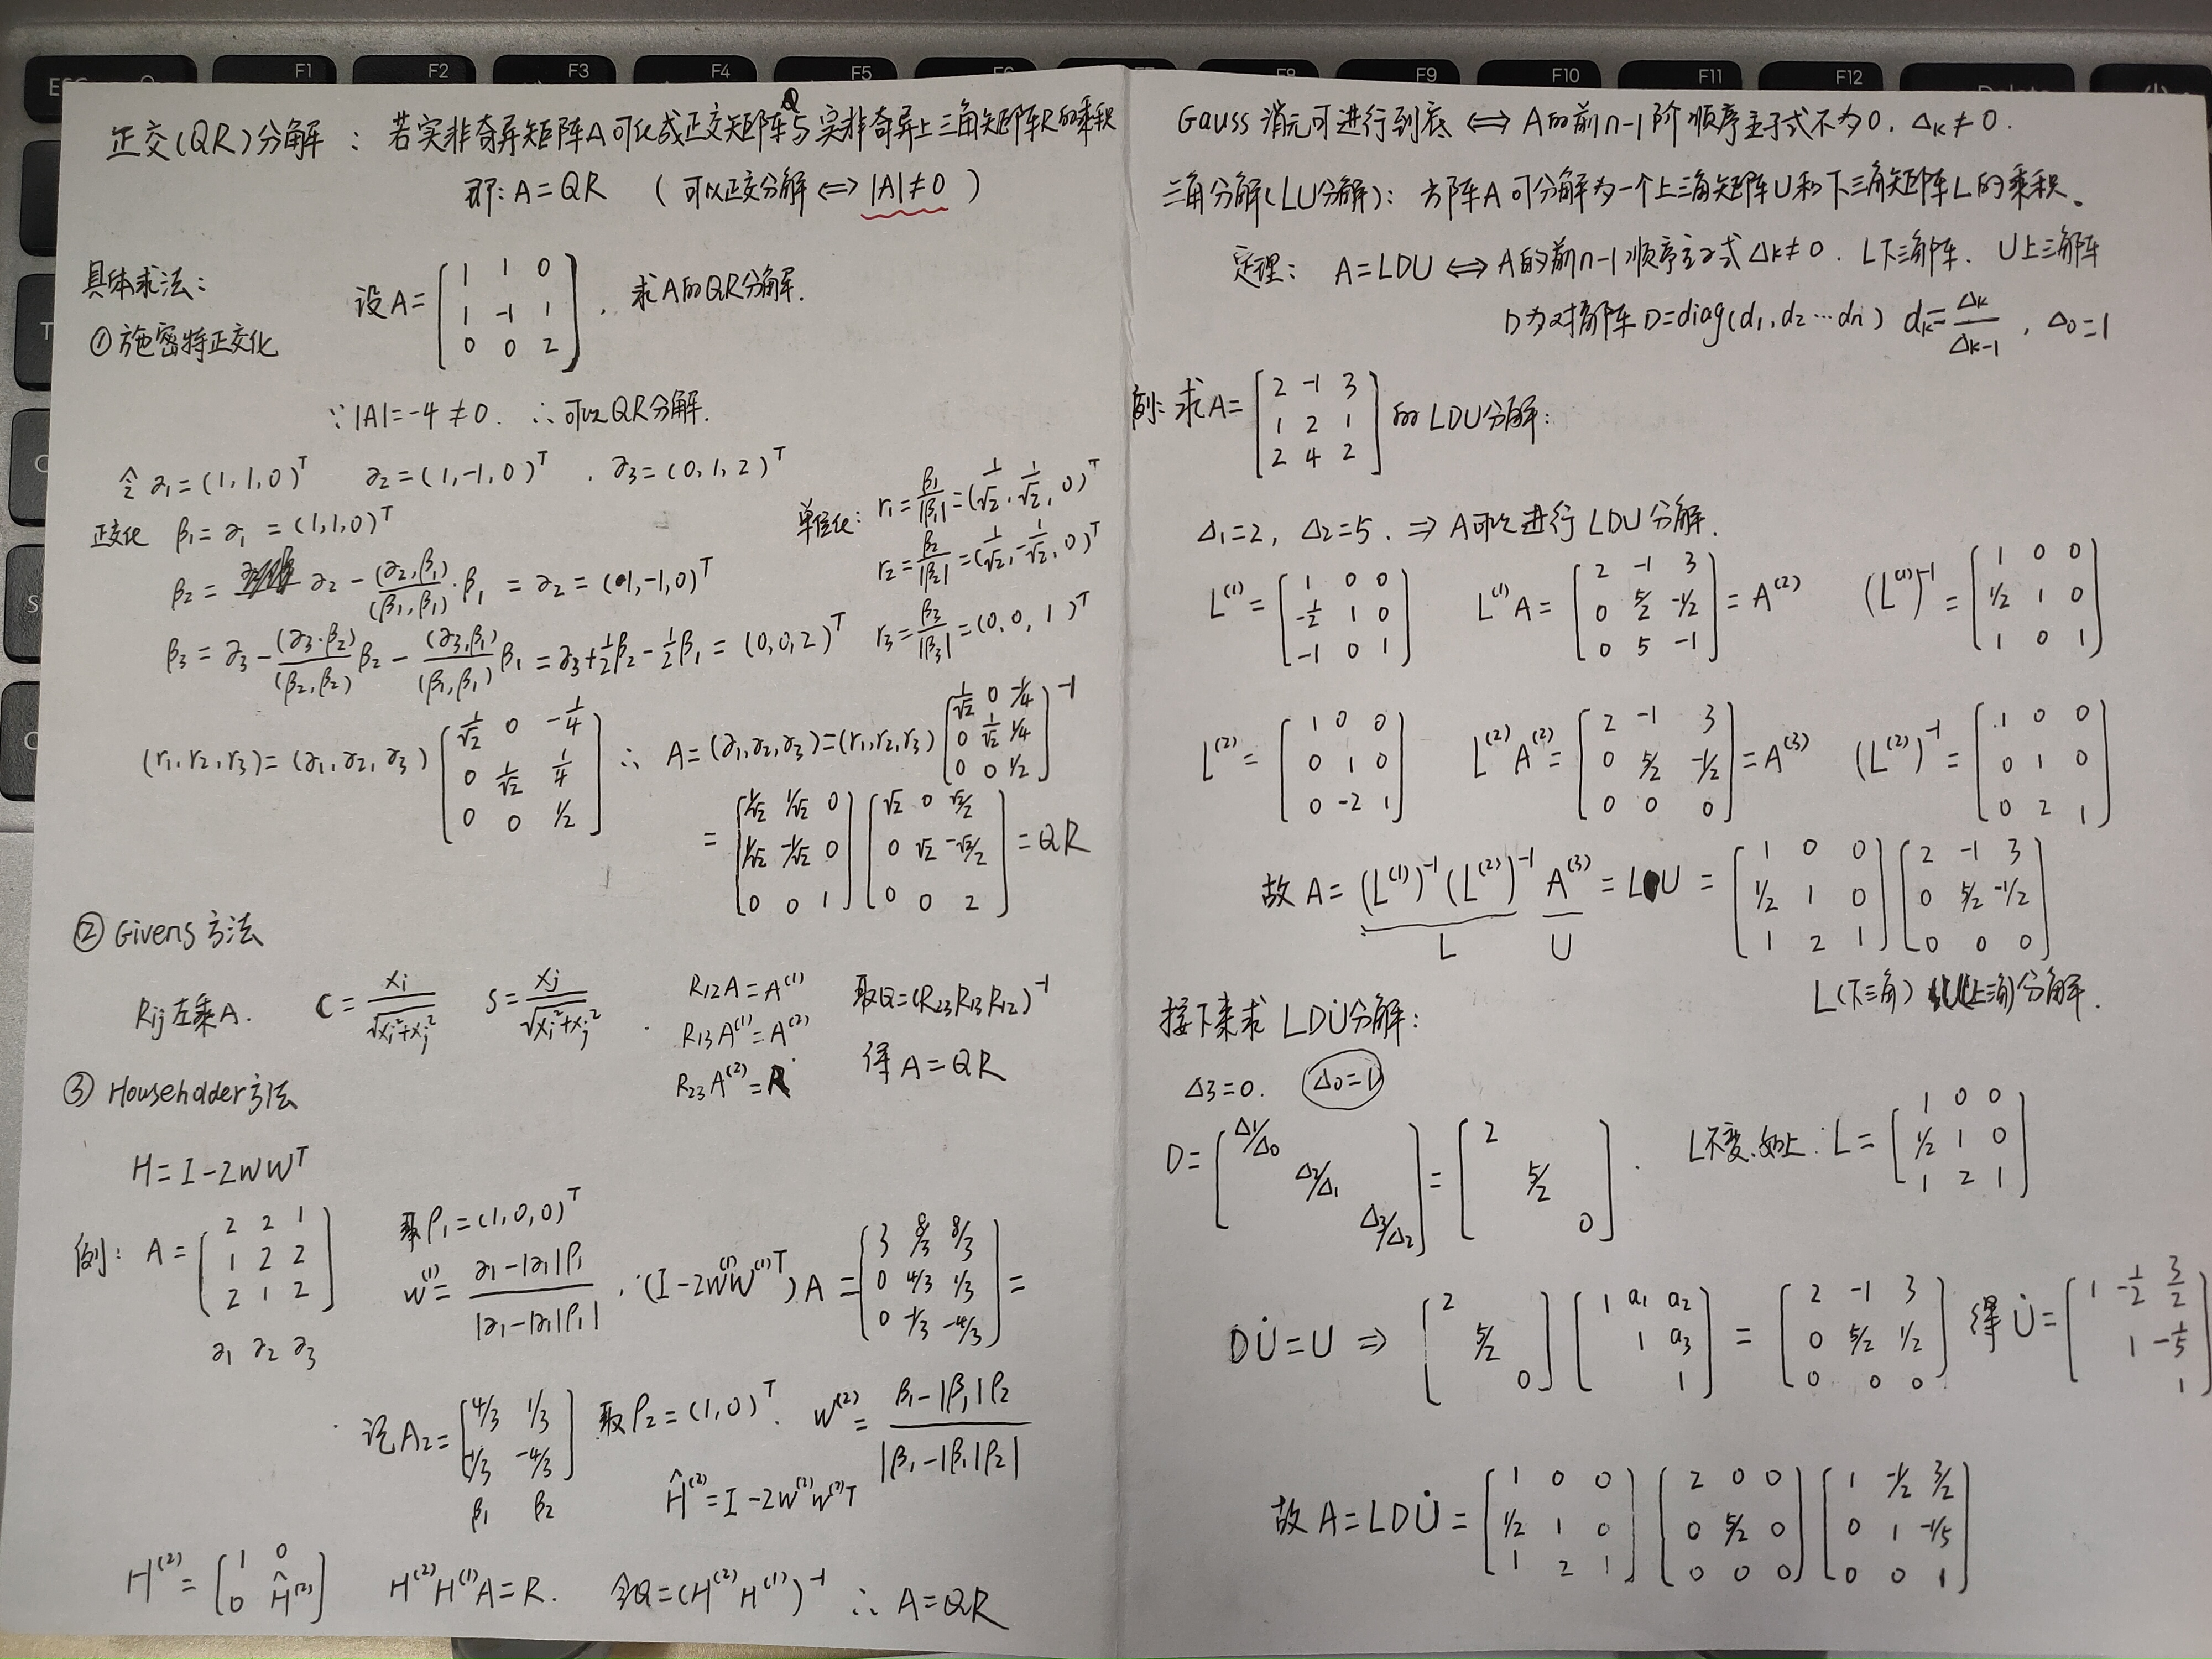 正交(QR)分解：若实非奇异矩阵A可化成正交矩阵Q与实非奇异上三角矩阵R的乘积
即：A=QR （可以正交分解⇔|A|≠0）
具体求法：
①施密特正交化
设A=[1 1 0; 1 -1 1; 0 0 2]，求A的QR分解.
∵|A|=-4≠0. ∴可以QR分解.
令α₁=(1,1,0)ᵀ α₂=(1,-1,0)ᵀ，α₃=(0,1,2)ᵀ
正交化 β₁=α₁=(1,1,0)ᵀ
β₂=α₂-(α₂,β₁)/(β₁,β₁)·β₁=α₂=(1,-1,0)ᵀ
β₃=α₃-(α₃·β₂)/(β₂,β₂)β₂-(α₃,β₁)/(β₁,β₁)β₁=α₃+½β₂-½β₁=(0,0,2)ᵀ
单位化：r₁=β₁/|β₁|=(1/√2,1/√2,0)ᵀ
r₂=β₂/|β₂|=(1/√2,-1/√2,0)ᵀ
r₃=β₃/|β₃|=(0,0,1)ᵀ
(r₁,r₂,r₃)=(α₁,α₂,α₃)[1/√2 0 -1/4; 0 1/√2 1/4; 0 0 1/2] ∴ A=(α₁,α₂,α₃)=(r₁,r₂,r₃)[1/√2 0 -1/4; 0 1/√2 1/4; 0 0 1/2]⁻¹
=[1/√2 1/√2 0; 1/√2 -1/√2 0; 0 0 1][√2 0 √2/2; 0 √2 -√2/2; 0 0 2]=QR
②Givens方法
Rij左乘A. C=xi/√(xi²+xj²) S=xj/√(xi²+xj²).
R₁₂A=A⁽¹⁾
R₁₃A⁽¹⁾=A⁽²⁾
R₂₃A⁽²⁾=R
取Q=(R₂₃R₁₃R₁₂)⁻¹
得A=QR
③Householder方法
H=I-2WWᵀ
例：A=[2 2 1; 1 2 2; 2 1 2]
α₁ α₂ α₃
取ρ₁=(1,0,0)ᵀ
w⁽¹⁾=(α₁-|α₁|ρ₁)/|α₁-|α₁|ρ₁|. (I-2W⁽¹⁾W⁽¹⁾ᵀ)A=[3 8/3 8/3; 0 4/3 1/3; 0 -1/3 -4/3]=
记A₂=[4/3 1/3; -1/3 -4/3] 取ρ₂=(1,0)ᵀ. w⁽²⁾=(β₁-|β₁|ρ₂)/|β₁-|β₁|ρ₂|
β₁ β₂
Ĥ⁽²⁾=I-2w⁽²⁾w⁽²⁾ᵀ
H⁽²⁾=[1 0; 0 Ĥ⁽²⁾] H⁽²⁾H⁽¹⁾A=R. 令Q=(H⁽²⁾H⁽¹⁾)⁻¹ ∴A=QR
Gauss消元可进行到底⇔A的前n-1阶顺序主子式不为0，Δk≠0.
三角分解(LU分解)：方阵A可分解为一个上三角矩阵U和下三角矩阵L的乘积。
定理：A=LDU⇔A的前n-1顺序主子式Δk≠0. L下三角阵. U上三角阵
D为对角阵D=diag(d₁,d₂…dn) dk=Δk/Δk-1，Δ₀=1
例：求A=[2 -1 3; 1 2 1; 2 4 2]的LDU分解：
Δ₁=2，Δ₂=5. ⇒A可以进行LDU分解.
L⁽¹⁾=[1 0 0; -½ 1 0; -1 0 1] L⁽¹⁾A=[2 -1 3; 0 5/2 -1/2; 0 5 -1]=A⁽²⁾ (L⁽¹⁾)⁻¹=[1 0 0; 1/2 1 0; 1 0 1]
L⁽²⁾=[1 0 0; 0 1 0; 0 -2 1] L⁽²⁾A⁽²⁾=[2 -1 3; 0 5/2 -1/2; 0 0 0]=A⁽³⁾ (L⁽²⁾)⁻¹=[1 0 0; 0 1 0; 0 2 1]
故A=(L⁽¹⁾)⁻¹(L⁽²⁾)⁻¹A⁽³⁾=LU=[1 0 0; 1/2 1 0; 1 2 1][2 -1 3; 0 5/2 -1/2; 0 0 0]
L U
L(下三角) U(上三角)分解.
接下来求LDU̇分解：
Δ3=0. Δ₀=1
D=[Δ1/Δ0 Δ2/Δ1 Δ3/Δ2]=[2 5/2 0]. L不变，如上. L=[1 0 0; 1/2 1 0; 1 2 1]
DU̇=U⇒[2 5/2 0][1 a₁ a₂; 1 a₃; 1]=[2 -1 3; 0 5/2 1/2; 0 0 0] 得U̇=[1 -1/2 3/2; 1 -1/5; 1]
故A=LDU̇=[1 0 0; 1/2 1 0; 1 2 1][2 0 0; 0 5/2 0; 0 0 0][1 -1/2 3/2; 0 1 -1/5; 0 0 1]
ESC
F1
F2
F3
F4
F5
F8
F9
F10
F11
F12
Delete